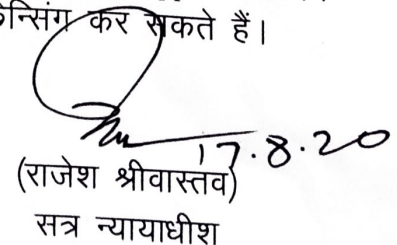 न्सिंग कर सकते हैं।
17.8.20
(राजेश श्रीवास्तव)
सत्र न्यायाधीश